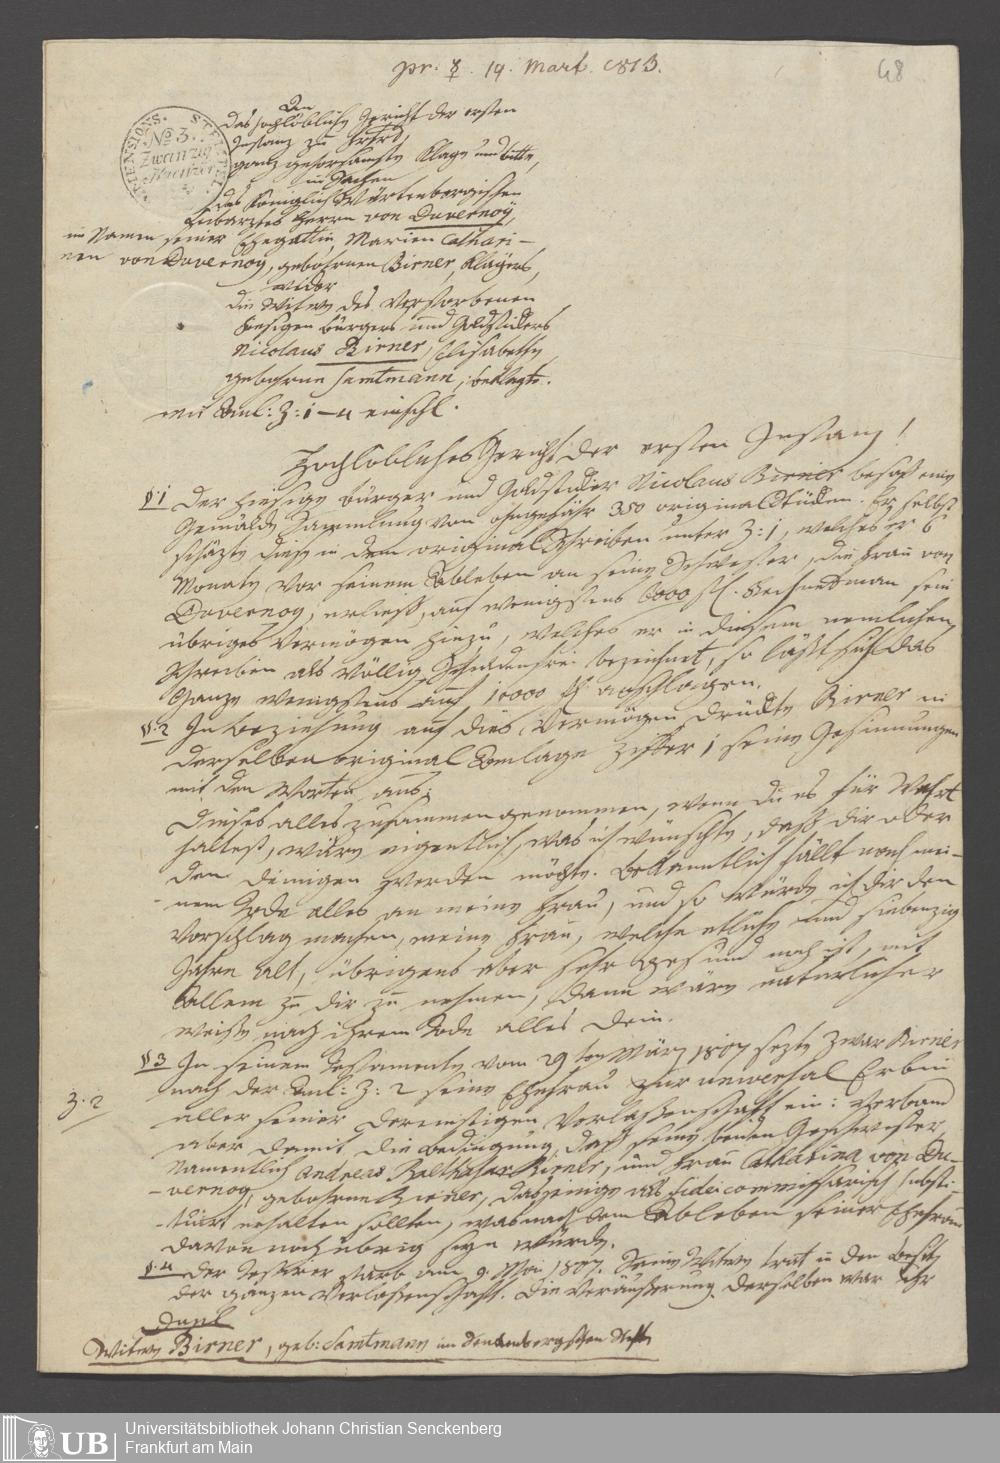 pr: ☿. 14. Mart. 1813.
48
PENSIONS. STEMPEL.
No 3.
Zwanzig
Kreuzer
An
das hochlöbliche Gericht der ersten
Instanz zu Frfrt,
ganz gehorsamste Klage und bitte,
in Sachen
des Königlich Würtenbergischen
Leibarztes Herrn von Duvernoÿ,
im Namen seiner Ehegattin, Marien Cathari-
nen von Duvernoy, gebohrnen Birner, Klägers,
wider
die Witwe des Verstorbenen
hiesigen Bürgers und Goldstickers
Nicolaus Birner, Elisabethe,
gebohrne Samtmann, beklagte.
mit Anl: Z: 1-4 einschl.
Hochlöbliches Gericht der ersten Instanz!
§ 1 Der hiesige Bürger und Goldsticker Nicolaus Birner besaß eine
Gemälde Sammlung von ohngefähr 350 originalStücken. Er selbst
schäzte diese in dem original Schreiben unter Z: 1, welches er 6
Monate vor seinem Ableben an seine Schwester, die Frau von
Duvernoy, erließ, auf wenigstens 6000 fl. Rechnet man sein
übriges Vermögen hinzu, welches er in diesem nemlichen
Schreiben als völlig Schuldenfrei bezeichnet, so läßt sich das
Ganze wenigstens auf 10000 fl anschlagen.
§. 2 In Beziehung auf dies Vermögen drückte Birner in
derselben original Anlage Ziffer 1 seine Gesinnungen
mit den Worten aus:
dieses alles zusammen genommen, wenn du es für Wehrt
haltest, wäre eigentlich, was ich wünschte, daß dir oder
den deinigen werden möchte. Bekanntlich fällt nach mei-
nem Tode alles an meine Frau, und so würde ich dir den
Vorschlag machen, meine Frau, welche etliche und siebenzig
Jahre alt, übrigens aber sehr gesund noch ist, mit
allem zu dir zu nehmen, dann wäre natürlicher
weise nach ihrem Tode alles dein.
§ 3 In seinem Testamente vom 29ten März 1807 sezte zwar Birner
Z. 2
nach der Anl: Z: 2 seine Ehefrau zur universal Erbin
aller seiner dereinstigen Verlaßenschaft ein: Verband
aber damit die Bedingung, daß seine beiden Geschwister,
namentlich Andreas Balthasar Birner, und Frau Catharina von Du-
vernoy, gebohrne Birner, dasjenige als fideicommissarisch substi-
tuirt erhalten sollten, was nach dem Ableben seiner Ehefrau
davon noch übrig seyn würde.
§. 4 Der Testirer starb am 9. Mai 1807. Seine Witwe trat in den Besitz
der ganzen Verlaßenschaft. Die Veräußerung derselben war ihr
Witwe Birner, geb: Samtmann im
Universitätsbibliothek Johann Christian Senckenberg
Frankfurt am Main
UB